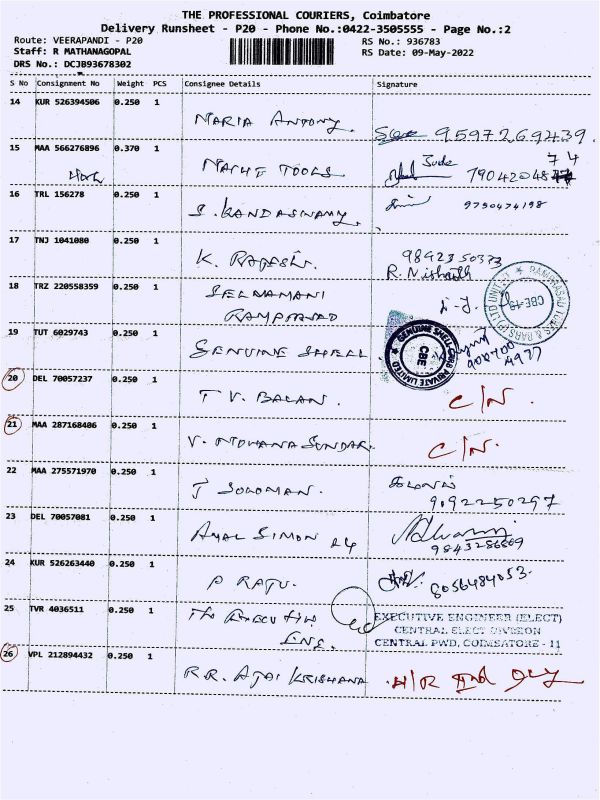 THE PROFESSIONAL COURIERS, Coimbatore
Delivery Runsheet - P20 - Phone No.:0422-3505555 - Page No.:2
Route: VEERAPANDI - P20 RS No.: 936783
Staff: R MATHANAGOPAL RS Date: 09-May-2022
DRS No.: DCJB93678302
S No Consignment No Weight PCS Consignee Details Signature
14 KUR 526394506 0.250 1
MARIA ANTONY. 9597269439.
15 MAA 566276896 0.370 1
NATHE TOOLS
16 TRL 156278 0.250 1
S. KANDASWAMY. 9750474198
17 TNJ 1041080 0.250 1
K. RAJESH. 9842350373
R. Nishanth
18 TRZ 220558359 0.250 1
SELVAMANI
RAMPRASAD
19 TUT 6029743 0.250 1
GENUINE SHELL
GENUINE SHELL PRIVATE LIMITED
CBE
20 DEL 70057237 0.250 1
T V. BALAN. C/N.
21 MAA 287168406 0.250 1
V. MOHANA SUNDAR. C/N.
22 MAA 275571970 0.250 1
J SOLOMAN. 9092250297
23 DEL 70057081 0.250 1
AMAL SIMON
24 KUR 526263440 0.250 1
P RAJU. 8056484053.
25 TVR 4036511 0.250 1
The EXECUTIVE
ENG.
EXECUTIVE ENGINEER (ELECT)
CENTRAL ELECT DIVISION
CENTRAL PWD, COIMBATORE - 11
26 VPL 212894432 0.250 1
R.R. AJAI KRISHANA H/R IInd